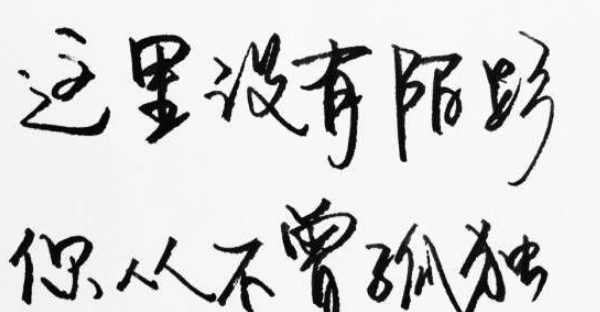 这里没有阴影
你从不曾孤独